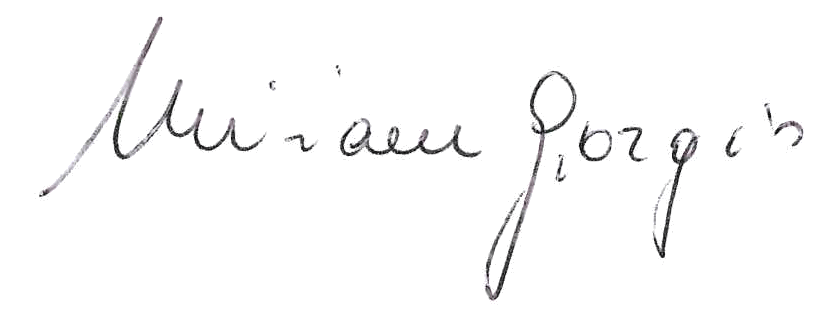 Miriam Giorgis